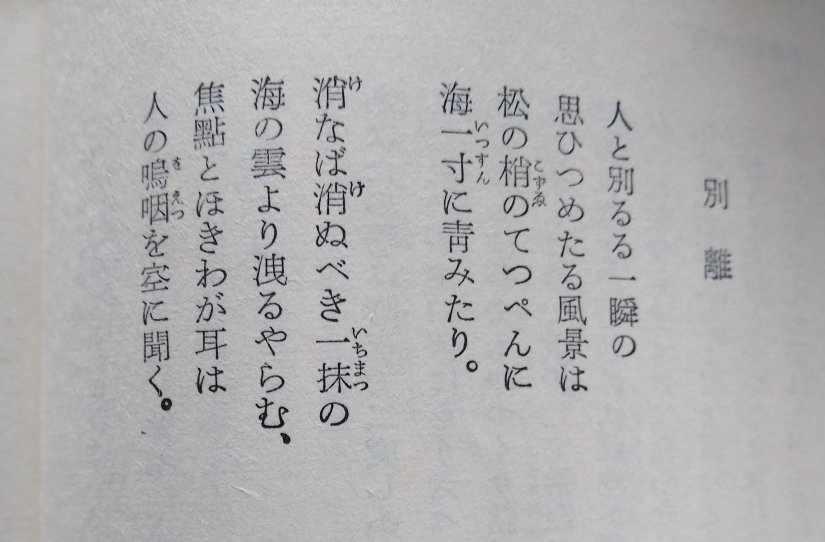 別離
人と別るる一瞬の
思ひつめたる風景は
松の梢のてつぺんに
海一寸に青みたり。
消なば消ぬべき一抹の
海の雲より洩るやらむ、
焦點とほきわが耳は
人の嗚咽を空に聞く。